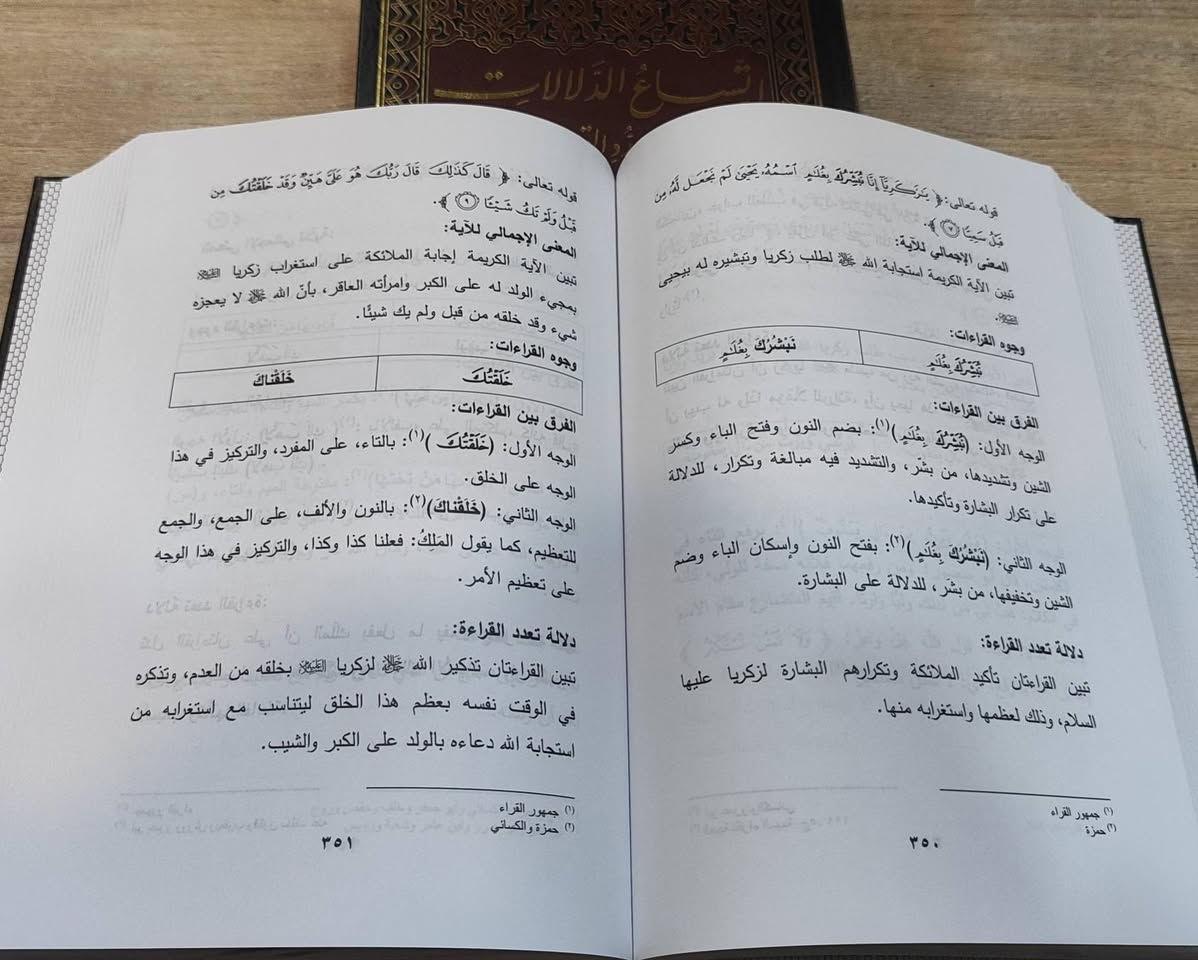 اتساع الدلالات
قوله تعالى: ﴿ يَٰزَكَرِيَّآ إِنَّا نُبَشِّرُكَ بِغُلَٰمٍ ٱسۡمُهُۥ يَحۡيَىٰ لَمۡ نَجۡعَل لَّهُۥ مِن
قَبۡلُ سَمِيّٗا ٧ ﴾.
المعنى الإجمالي للآية:
تبين الآية الكريمة استجابة الله ﷻ لطلب زكريا وتبشيره له بيحيى
عليه السلام.
وجوه القراءات:
نُبَشِّرُكَ بِغُلَٰمٍ نَبْشُرُكَ بِغُلَٰمٍ
الفرق بين القراءات:
الوجه الأول: (نُبَشِّرُكَ بِغُلَٰمٍ)(١): بضم النون وفتح الباء وكسر
الشين وتشديدها، من بشّر، والتشديد فيه مبالغة وتكرار، للدلالة
على تكرار البشارة وتأكيدها.
الوجه الثاني: (نَبْشُرُكَ بِغُلَٰمٍ)(٢): بفتح النون وإسكان الباء وضم
الشين وتخفيفها، من بشَر، للدلالة على البشارة.
دلالة تعدد القراءة:
تبين القراءتان تأكيد الملائكة وتكرارهم البشارة لزكريا عليها
السلام، وذلك لعظمها واستغرابه منها.
(١) جمهور القراء
(٢) حمزة
٣٥٠
قوله تعالى: ﴿ قَالَ كَذَٰلِكَ قَالَ رَبُّكَ هُوَ عَلَيَّ هَيِّنٞ وَقَدۡ خَلَقۡتُكَ مِن
قَبۡلُ وَلَمۡ تَكُ شَيۡـٔٗا ٩ ﴾.
المعنى الإجمالي للآية:
تبين الآية الكريمة إجابة الملائكة على استغراب زكريا عليه السلام
بمجيء الولد له على الكبر وامرأته العاقر، بأنّ الله ﷻ لا يعجزه
شيء وقد خلقه من قبل ولم يك شيئًا.
وجوه القراءات:
خَلَقْتُكَ خَلَقْنَاكَ
الفرق بين القراءات:
الوجه الأول: (خَلَقْتُكَ)(١): بالتاء، على المفرد، والتركيز في هذا
الوجه على الخلق.
الوجه الثاني: (خَلَقْنَاكَ)(٢): بالنون والألف، على الجمع، والجمع
للتعظيم، كما يقول المَلِكُ: فعلنا كذا وكذا، والتركيز في هذا الوجه
على تعظيم الأمر.
دلالة تعدد القراءة:
تبين القراءتان تذكير الله ﷻ لزكريا عليه السلام بخلقه من العدم، وتذكره
في الوقت نفسه بعظم هذا الخلق ليتناسب مع استغرابه من
استجابة الله دعاءه بالولد على الكبر والشيب.
(١) جمهور القراء
(٢) حمزة والكسائي
٣٥١